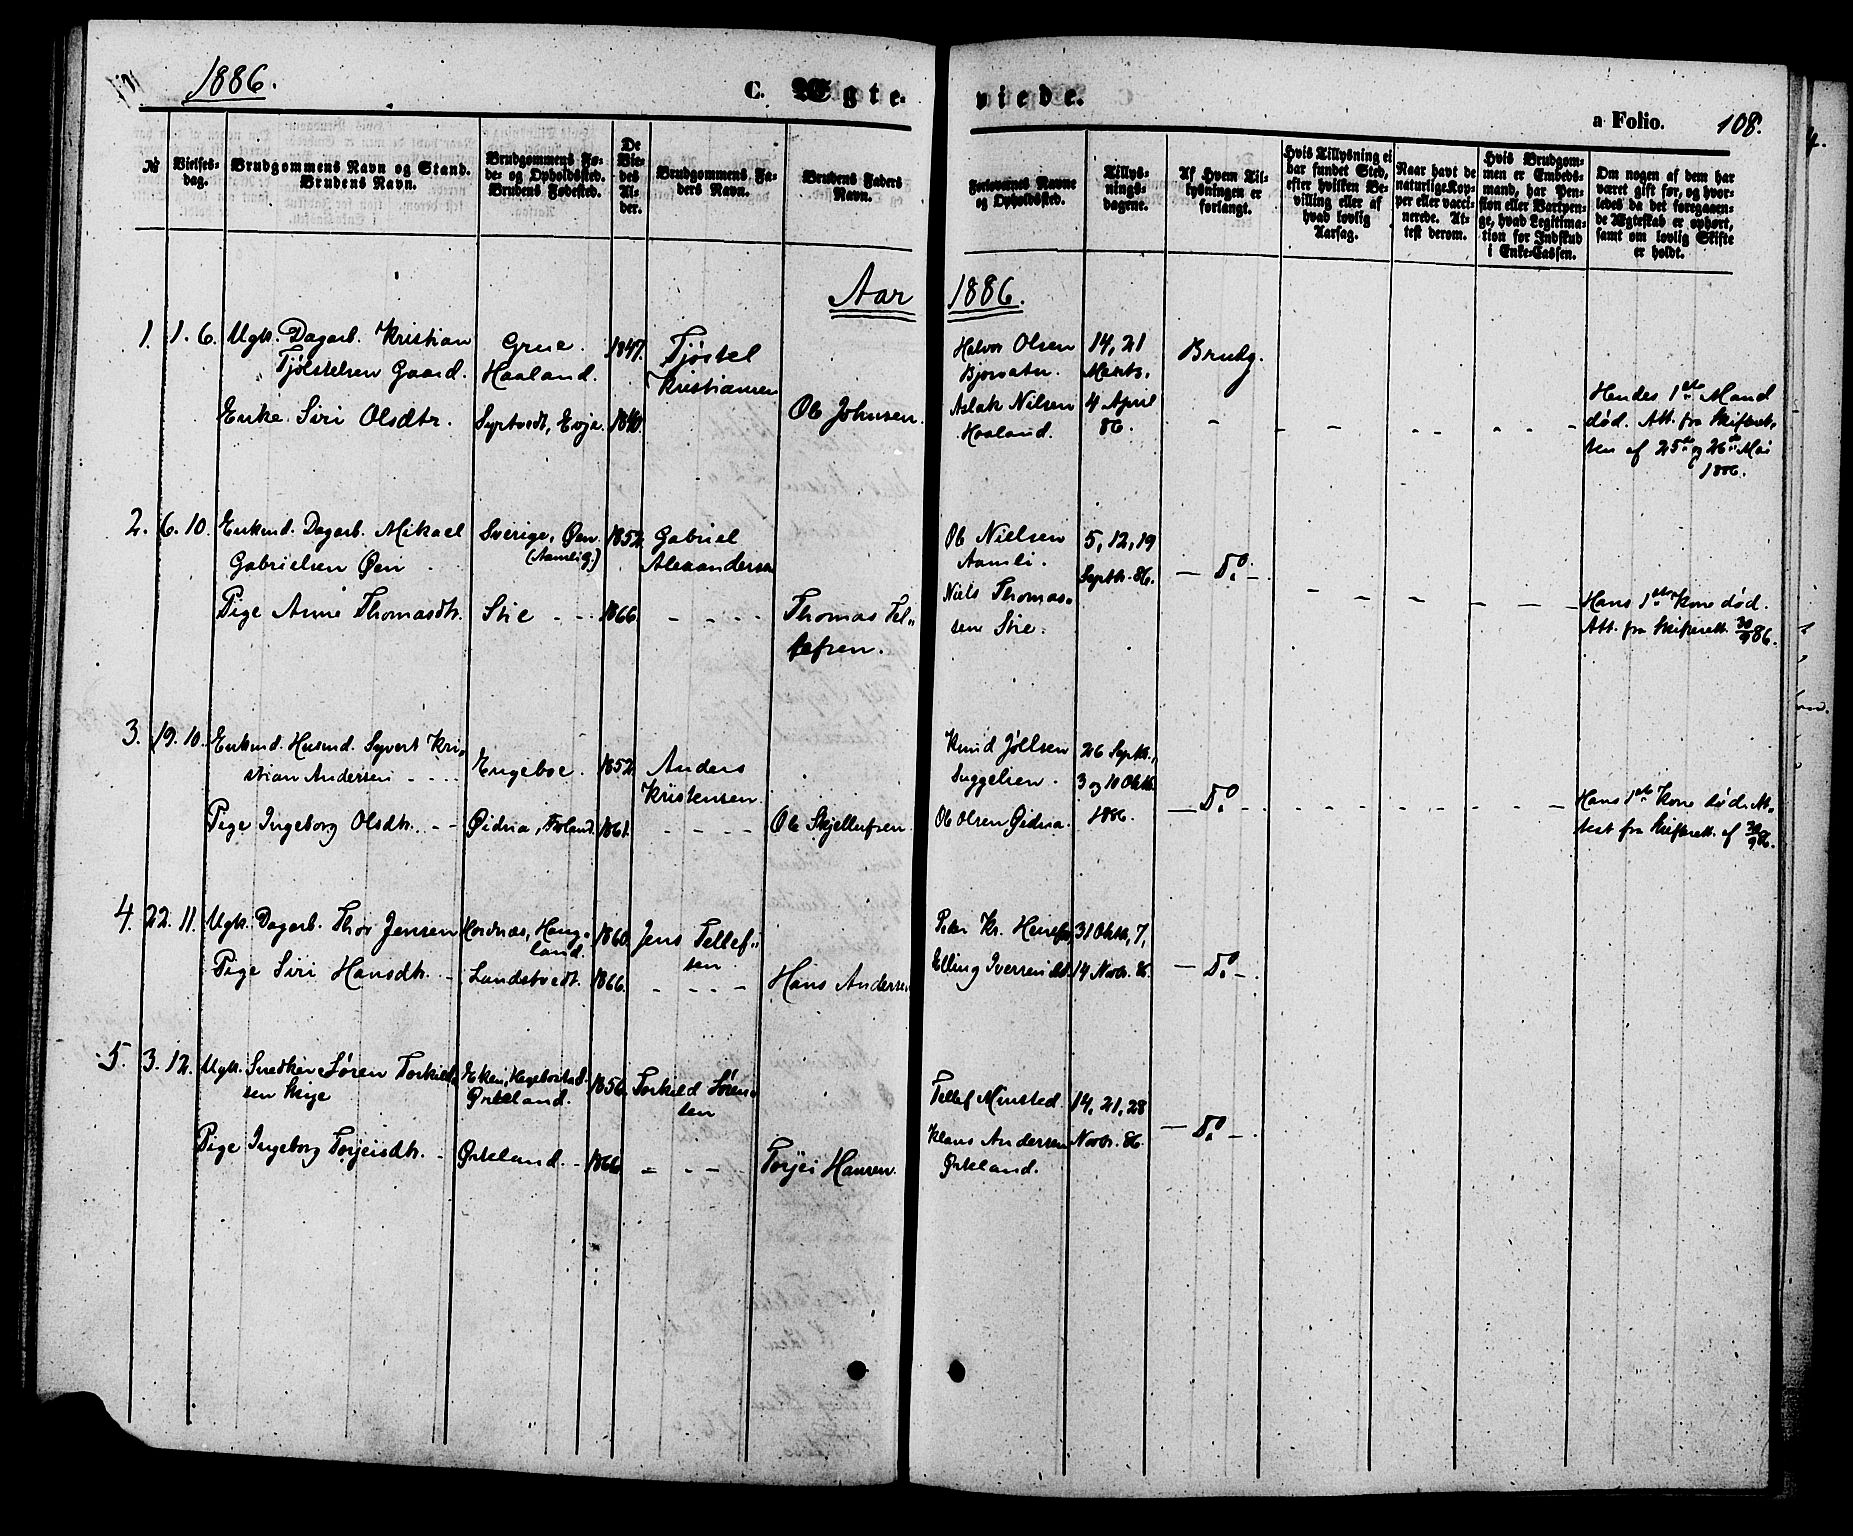 1886.
C. Ægte-
viede.
a Folio. 108.
№
Vielses-
dag.
Brudgommens Navn og Stand.
Brudens Navn.
Brudgommens Fø-
de- og Opholdssted.
Brudens Fødested.
De
Vie-
des
Al-
der.
Brudgommens Fa-
ders Navn.
Brudens Faders
Navn.
Forlovernes Navne
og Opholdssted.
Tillys-
nings-
dagene.
Af Hvem Til-
lysningen er
forlangt.
Hvis Tillysning ei
har fundet Sted,
efter hvilken Be-
villing eller af
hvad lovlig
Aarsag.
Naar havt de
naturlige Kop-
per eller vacci-
nerede. At-
test derom.
Hvis Brudgom-
men er Embeds-
mand, har Pen-
sion eller Vartpen-
ge, hvad Legitima-
tion for Indskud
i Enke-Cassen.
Om nogen af dem har
været gift før, og hvor-
ledes da det foregaaen-
de Ægteskab er ophørt,
samt om lovlig Skifte
er holdt.
Aar 1886.
1. 1. 6. Ugk. Dagarb. Kristian
Tjøstelsen Gaard.
Grue.
Haaland.
1847.
Tjøstel
Kristiansen
Halvor Olsen
Bjorvatn.
14, 21
Marts.
Brudg.
Enke Siri Olsdtr.
Syrtvedt, Evje.
1840.
Ole Johnsen.
Aslak Nilsen
Haaland.
4 April
86.
Hendes 1ste Mand
død. Att. fra Skifteret-
ten af 25de og 26de Mai
1886.
2. 6. 10. Enkmd. Dagarb. Mikael
Gabrielsen Øen
Sverige, Øen
(Aamlig)
1852
Gabriel
Alexandersen
Ole Nielsen
Aamli.
5, 12, 19
Septbr. 86.
— Do —
Pige Anne Thomasdtr.
Stie - -
1866.
Thomas Tel-
lefsen.
Niels Thomas-
sen Stie.
Hans 1ste Kone død.
Att. fra Skifterett. 30/9 86.
3. 19. 10. Enkmd. Husmd. Syvert Kri-
stian Andersen - - -
Engeboe.
1852
Anders
Kristensen.
Knud Jøllsen
Suggelien.
26 Septbr.,
3 og 10 Oktb.
1886.
— Do —
Pige Ingeborg Olsdtr. - -
1861.
Ole Skjellufsen.
Ole Olsen
Hans 1ste Kone død. At-
test fra Skifterett. af 30/9 86.
4. 22. 11. Ugk. Dagarb. Thor Jensen
Hordnæs, Haug-
land.
1860.
Jens Tellef-
sen
31 Oktb., 7,
14 Novbr. 86.
— Do —
Pige Siri Hansdtr. -
Lundetvedt.
1866.
Hans Andersen
Elling Iversen
5. 3. 12. Ugk. Snedker Søren Torkild-
sen
Eken, Hegebostad.
Ørkeland.
1856.
Torkild Søren-
sen
Tellef Minsted.
14, 21, 28
Novbr. 86.
— Do —
Pige Ingeborg Torjeisdtr. -
Ørkeland. -
1866
Torjei Hansen.
Klaus Andersen
Ørkeland.